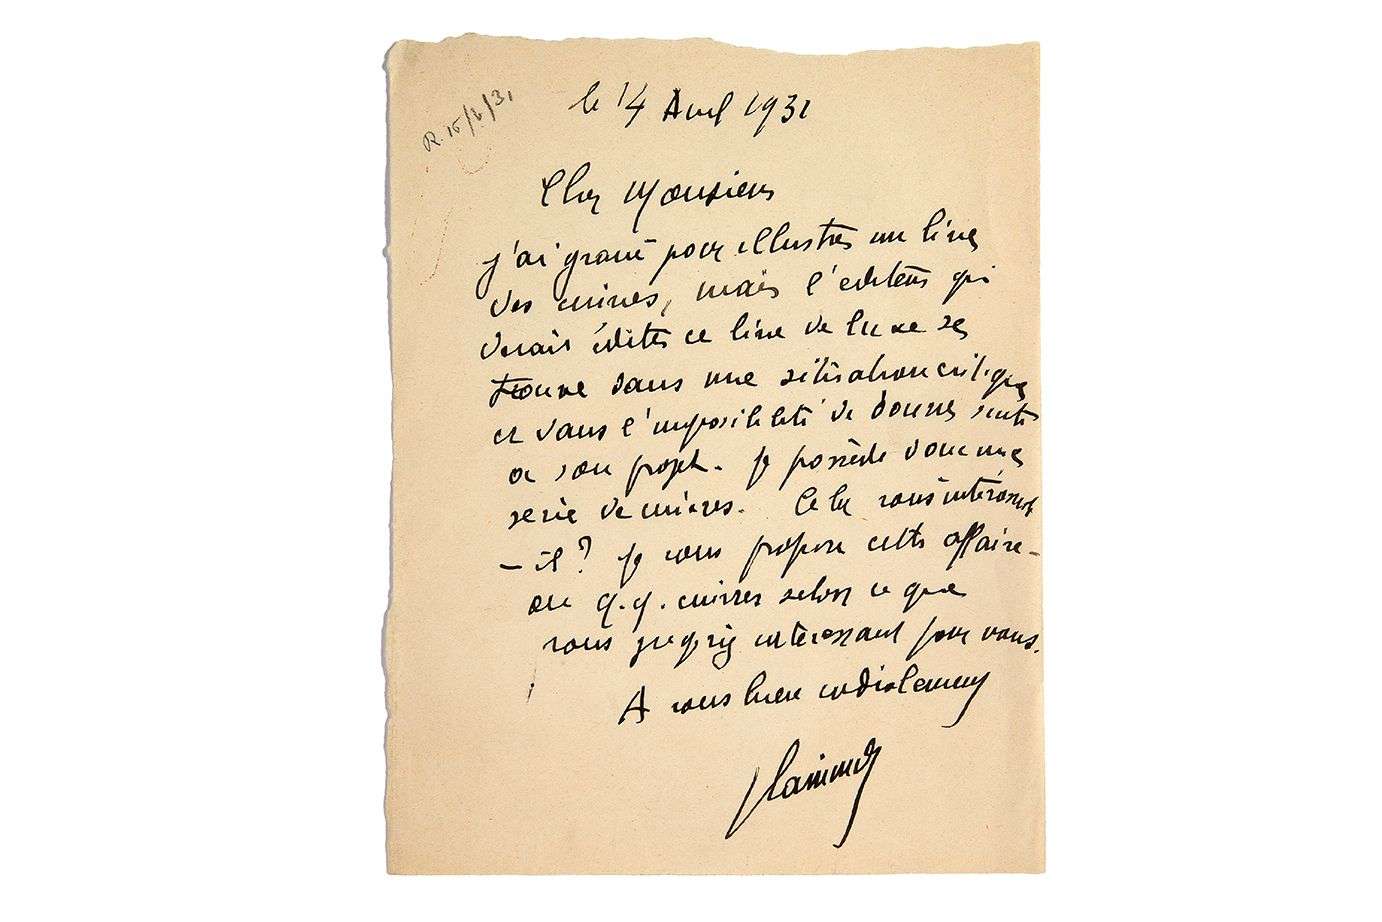 R. 15/4/31
le 14 Avril 1931
Cher Monsieur
j'ai gravé pour illustrer un livre
des cuivres, mais l'éditeur qui
devait éditer ce livre de luxe se
trouve dans une situation critique
et dans l'impossibilité de donner suite
à son projet. Je possède donc une
serie de cuivres. Cela vous intéresset
- il ? Je vous propose cette affaire -
ou q.q. cuivres selon ce que
vous jugerez intéressant pour vous.
A vous bien cordialement
Vlaminck